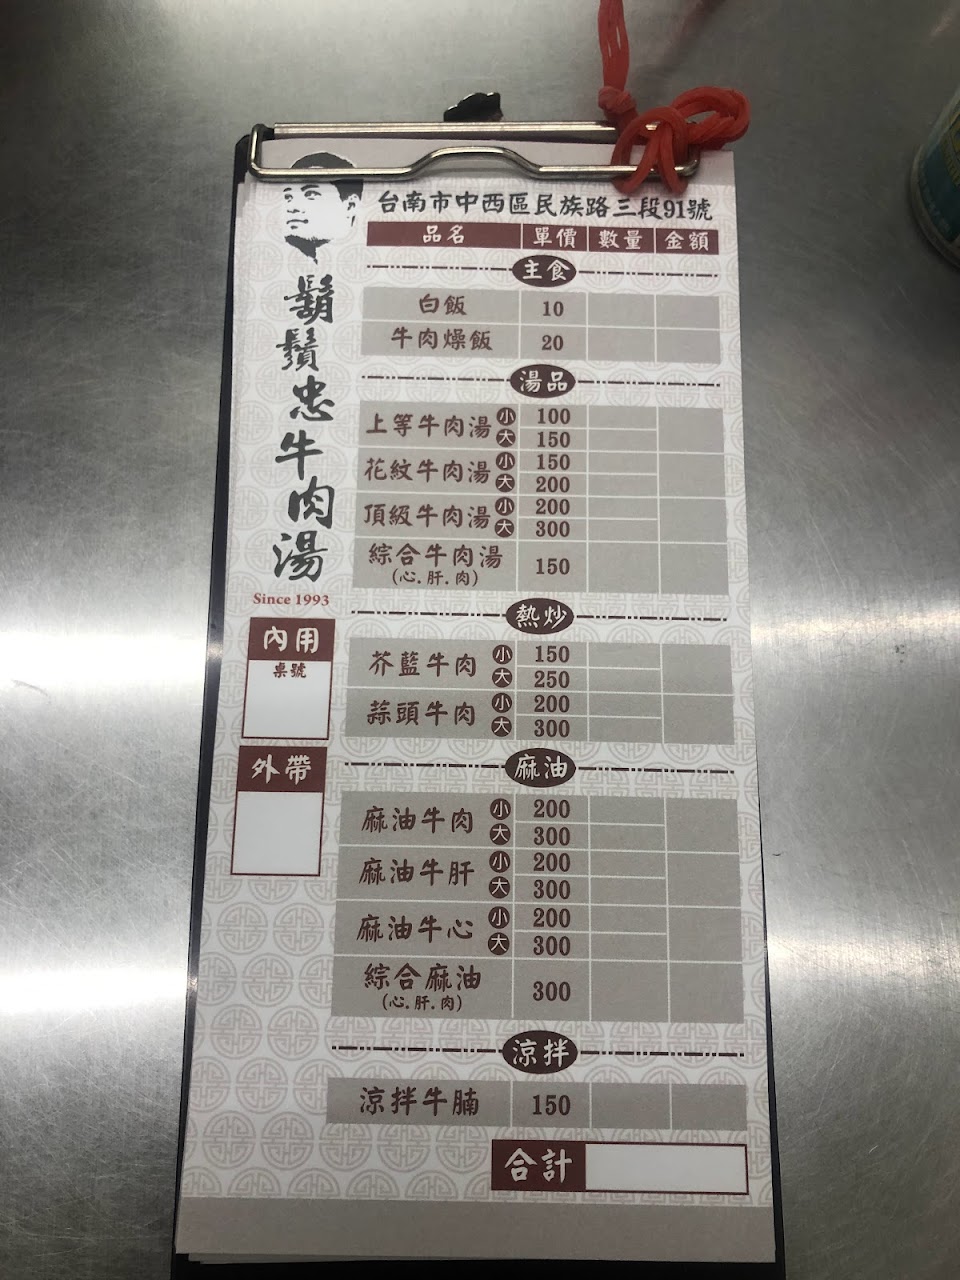 台南市中西區民族路三段91號
鬍鬚忠牛肉湯
Since 1993
內用
桌號
外帶
品名 單價 數量 金額
主食
白飯 10
牛肉燥飯 20
湯品
上等牛肉湯 小 100
大 150
花紋牛肉湯 小 150
大 200
頂級牛肉湯 小 200
大 300
綜合牛肉湯 150
(心.肝.肉)
熱炒
芥藍牛肉 小 150
大 250
蒜頭牛肉 小 200
大 300
麻油
麻油牛肉 小 200
大 300
麻油牛肝 小 200
大 300
麻油牛心 小 200
大 300
綜合麻油 300
(心.肝.肉)
涼拌
涼拌牛腩 150
合計